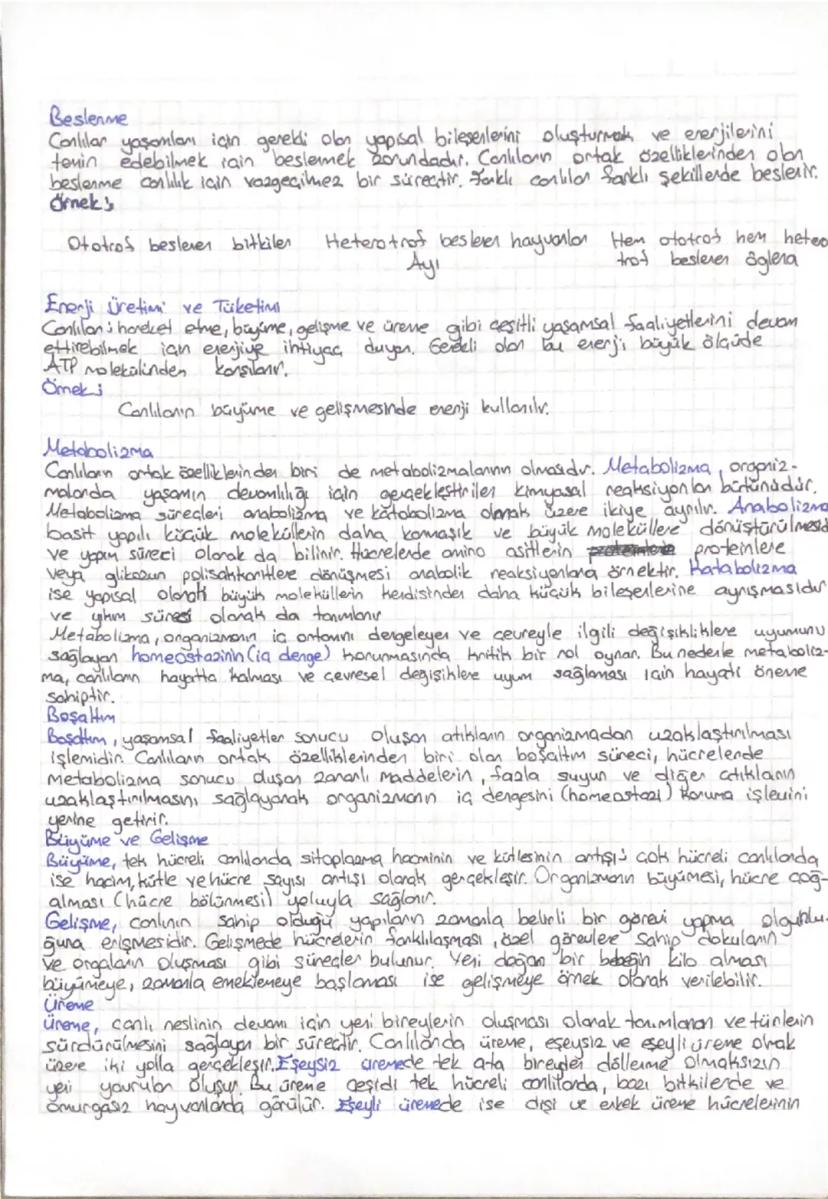 Beslenme
Canlılar yaşamları için gerekli olan yapısal bileşenlerini oluşturmak ve enerjilerini
temin edebilmek için beslenmek zorundadır. Canlıların ortak özelliklerinden olan
beslenme canlılık için vazgeçilmez bir süreçtir. Farklı canlılar farklı şekillerde beslenir.
Örnek;
Ototrof beslenen bitkiler Heterotrof beslenen hayvanlar Hem ototrof hem hetero
Ayı trof beslenen öglena
Enerji Üretimi ve Tüketimi
Canlılar; hareket etme, büyüme, gelişme ve üreme gibi çeşitli yaşamsal faaliyetlerini devam
ettirebilmek için enerjiye ihtiyaç duyar. Gerekli olan bu enerji büyük ölçüde
ATP molekülünden karşılanır.
Örnek;
Canlıların büyüme ve gelişmesinde enerji kullanılır.
Metabolizma
Canlıların ortak özelliklerinden biri de metabolizmalarının olmasıdır. Metabolizma, organiz-
malarda yaşamın devamlılığı için gerçekleştirilen kimyasal reaksiyonlar bütünüdür.
Metabolizma süreçleri anabolizma ve katabolizma olmak üzere ikiye ayrılır. Anabolizma
basit yapılı küçük moleküllerin daha karmaşık ve büyük moleküllere dönüştürülmesid
ve yapım süreci olarak da bilinir. Hücrelerde amino asitlerin proteinlere
veya glikozun polisakkaritlere dönüşmesi anabolik reaksiyonlara örnektir. Katabolizma
ise yapısal olarak büyük moleküllerin kendisinden daha küçük bileşenlerine ayrışmasıdır
ve yıkım süreci olarak da tanımlanır
Metabolizma, organizmanın iç ortamını dengeleyen ve çevreyle ilgili değişikliklere uyumunu
sağlayan homeostazinin (iç denge) korunmasında kritik bir rol oynar. Bu nedenle metaboliz-
ma, canlıların hayatta kalması ve çevresel değişiklere uyum sağlaması için hayati öneme
sahiptir.
Boşaltım
Boşaltım, yaşamsal faaliyetler sonucu oluşan atıkların organizmadan uzaklaştırılması
işlemidir. Canlıların ortak özelliklerinden biri olan boşaltım süreci, hücrelerde
metabolizma sonucu oluşan zararlı maddelerin, fazla suyun ve diğer atıkların
uzaklaştırılmasını sağlayarak organizmanın iç dengesini (homeostazi) koruma işlevini
yerine getirir.
Büyüme ve Gelişme
Büyüme, tek hücreli canlılarda sitoplazma hacminin ve kütlesinin artışı; çok hücreli canlılarda
ise hacim, kütle ve hücre sayısı artışı olarak gerçekleşir. Organizmanın büyümesi, hücre çoğ-
alması (hücre bölünmesi) yoluyla sağlanır.
Gelişme, canlının sahip olduğu yapıların zamanla belirli bir görevi yapma olgunlu-
ğuna erişmesidir. Gelişmede hücrelerin farklılaşması, özel görevlere sahip dokuların
ve orgaların oluşması gibi süreçler bulunur. Yeni doğan bir bebeğin kilo alması
büyümeye, zamanla emeklemeye başlaması ise gelişmeye örnek olarak verilebilir.
Üreme
Üreme, canlı neslinin devamı için yeni bireylerin oluşması olarak tanımlanan ve türlerin
sürdürülmesini sağlayan bir süreçtir. Canlılarda üreme, eşeysiz ve eşeyli üreme olmak
üzere iki yolla gerçekleşir. Eşeysiz üremede tek ata bireyden döllenme olmaksızın
yeni yavrular oluşur. Bu üreme çeşidi tek hücreli canlılarda, bazı bitkilerde ve
omurgasız hayvanlarda görülür. Eşeyli üremede ise dişi ve erkek üreme hücrelerinin